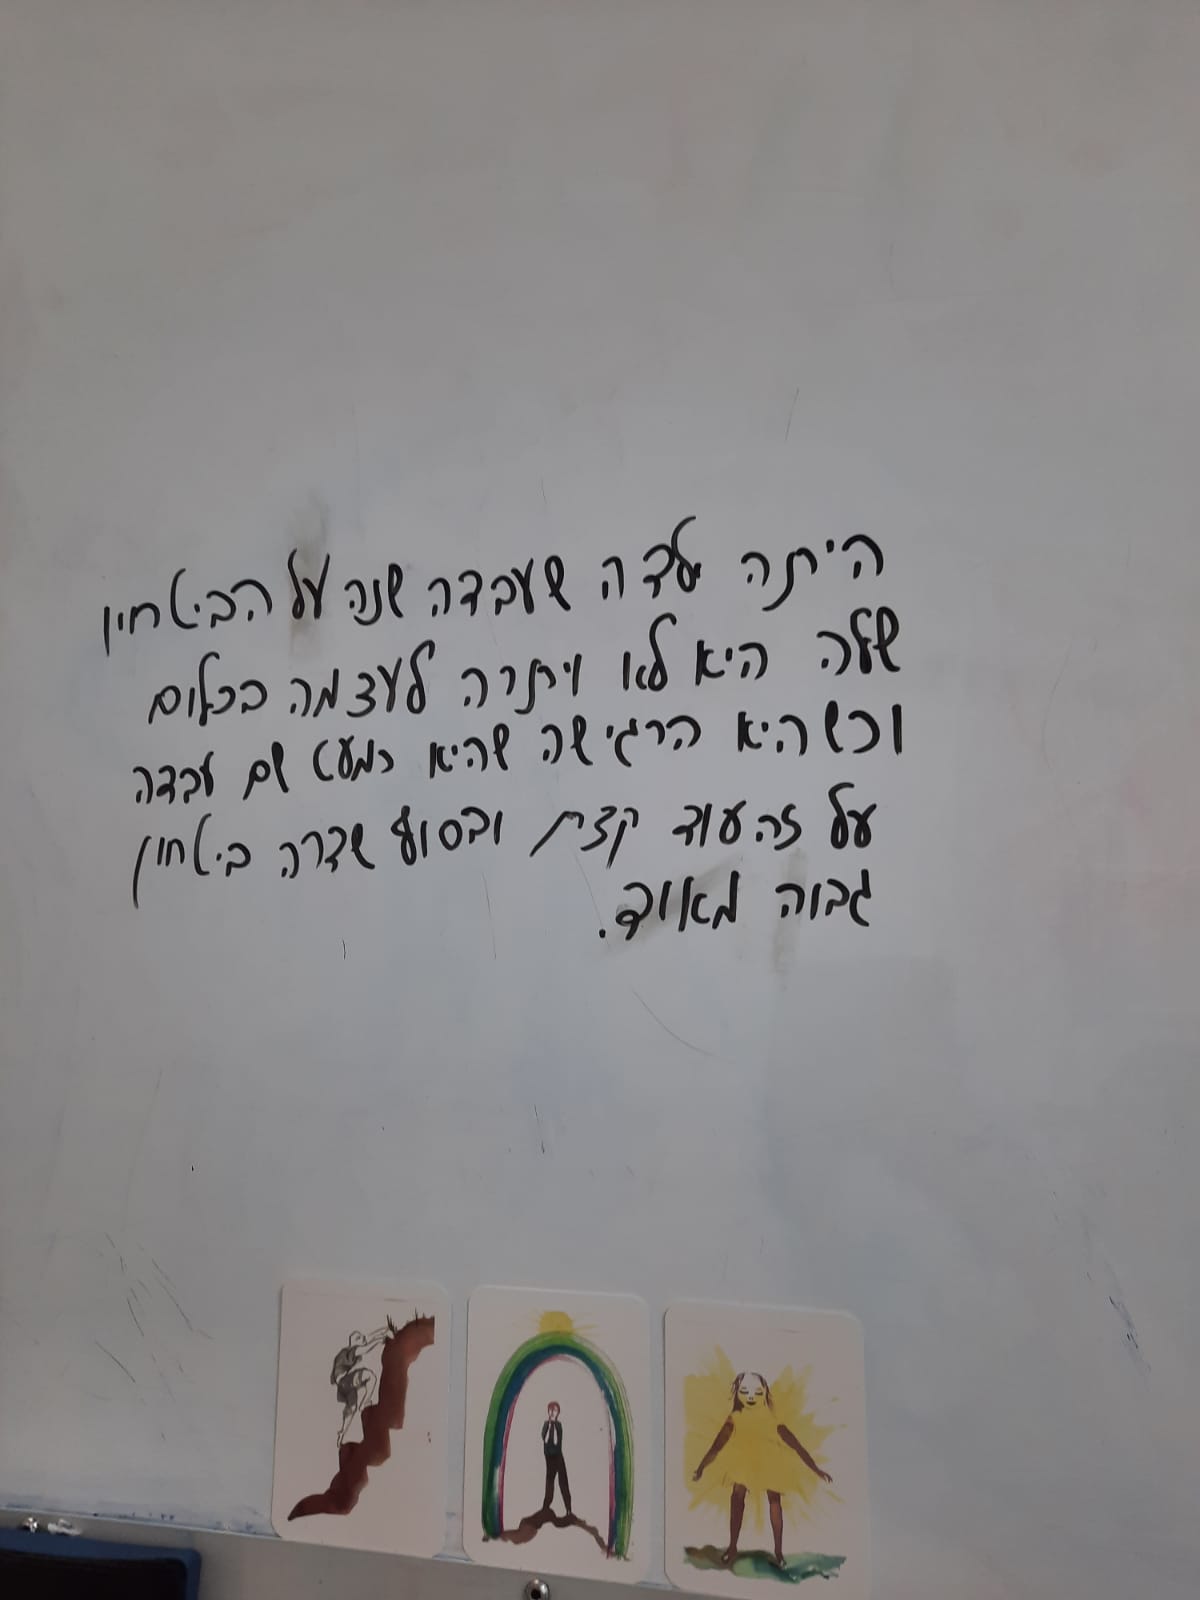 היתה ילדה שעבדה שנה על הביטחון
שלה היא לא ויתרה לעצמה בכלום
וכשהיא הרגישה שהיא כמעט שם עבדה
על זה עוד קצת ובסוף שדרה ביטחון
גבוה מאוד.